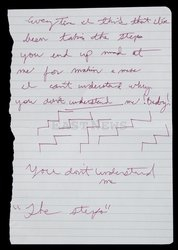 Everytime I think that I've
been taken the steps
you end up mad at
me for makin a move
I can't understand why
you don't understand me today
EASTNEWS
You don't understand
me
"The steps"